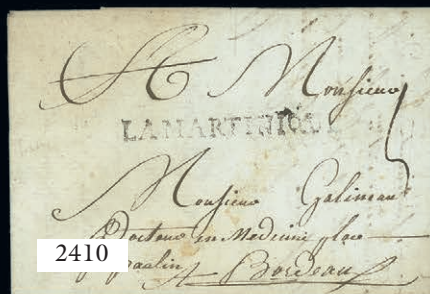 A Monsieur
LAMARTINIQUE
Monsieur Galineau
Docteur en Medecine place
paulin
A Bordeaux
2410